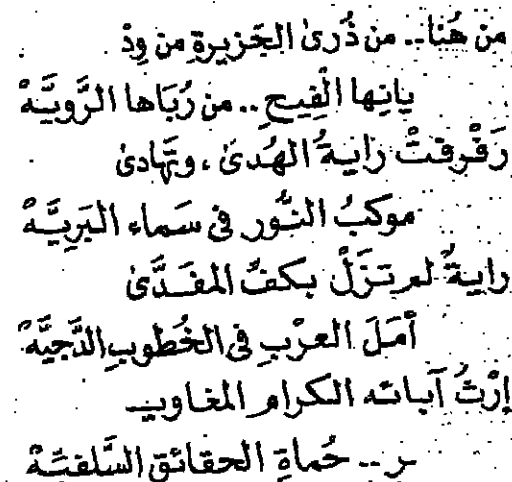 من هُنَا.. من ذُرىٰ الجَزيرةِ من وِدْ
يانِها الْفِيحِ.. من رُبَاها الرَّوِيَّـهْ
رَفْرفتْ رايـةُ الهُدىٰ ، وتَهَادىٰ
موكبُ النُّور فى سَماء البَرِيَّـهْ
رايةٌ لم تزَلْ بكفِّ المفَـدَّىٰ
أمَلَ العرْبِ فى الخُطوبِ الدَّجِيَّهْ
إرْثُ آبـائه الكرام المغـاويـ
ـر .. حُماةِ الحقائقِ السَّلفيَّـهْ